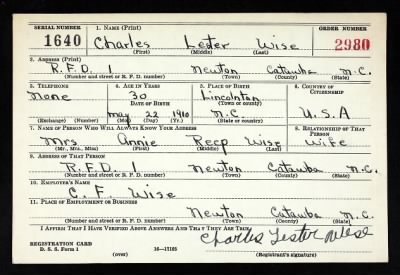 SERIAL NUMBER 1. NAME (Print) ORDER NUMBER
1640 Charles Lester Wise 2980
(First) (Middle) (Last)
2. ADDRESS (Print)
R.F.D. 1 Newton Catawba N.C.
(Number and street or R. F. D. number) (Town) (County) (State)
3. TELEPHONE 4. AGE IN YEARS 5. PLACE OF BIRTH 6. COUNTRY OF CITIZENSHIP
None 30 Lincolnton
DATE OF BIRTH (Town or county)
May 22 1910 N.C. U.S.A
(Exchange) (Number) (Mo.) (Day) (Yr.) (State or country)
7. NAME OF PERSON WHO WILL ALWAYS KNOW YOUR ADDRESS 8. RELATIONSHIP OF THAT PERSON
Mrs Annie Reep Wise Wife
(Mr., Mrs., Miss) (First) (Middle) (Last)
9. ADDRESS OF THAT PERSON
R.F.D. 1 Newton Catawba N.C.
(Number and street or R. F. D. number) (Town) (County) (State)
10. EMPLOYER'S NAME
C. F. Wise
11. PLACE OF EMPLOYMENT OR BUSINESS
Newton Catawba N.C.
(Number and street or R. F. D. number) (Town) (County) (State)
I AFFIRM THAT I HAVE VERIFIED ABOVE ANSWERS AND THAT THEY ARE TRUE.
Charles Lester Wise
REGISTRATION CARD
D. S. S. Form 1 (over) 16—17105 (Registrant's signature)